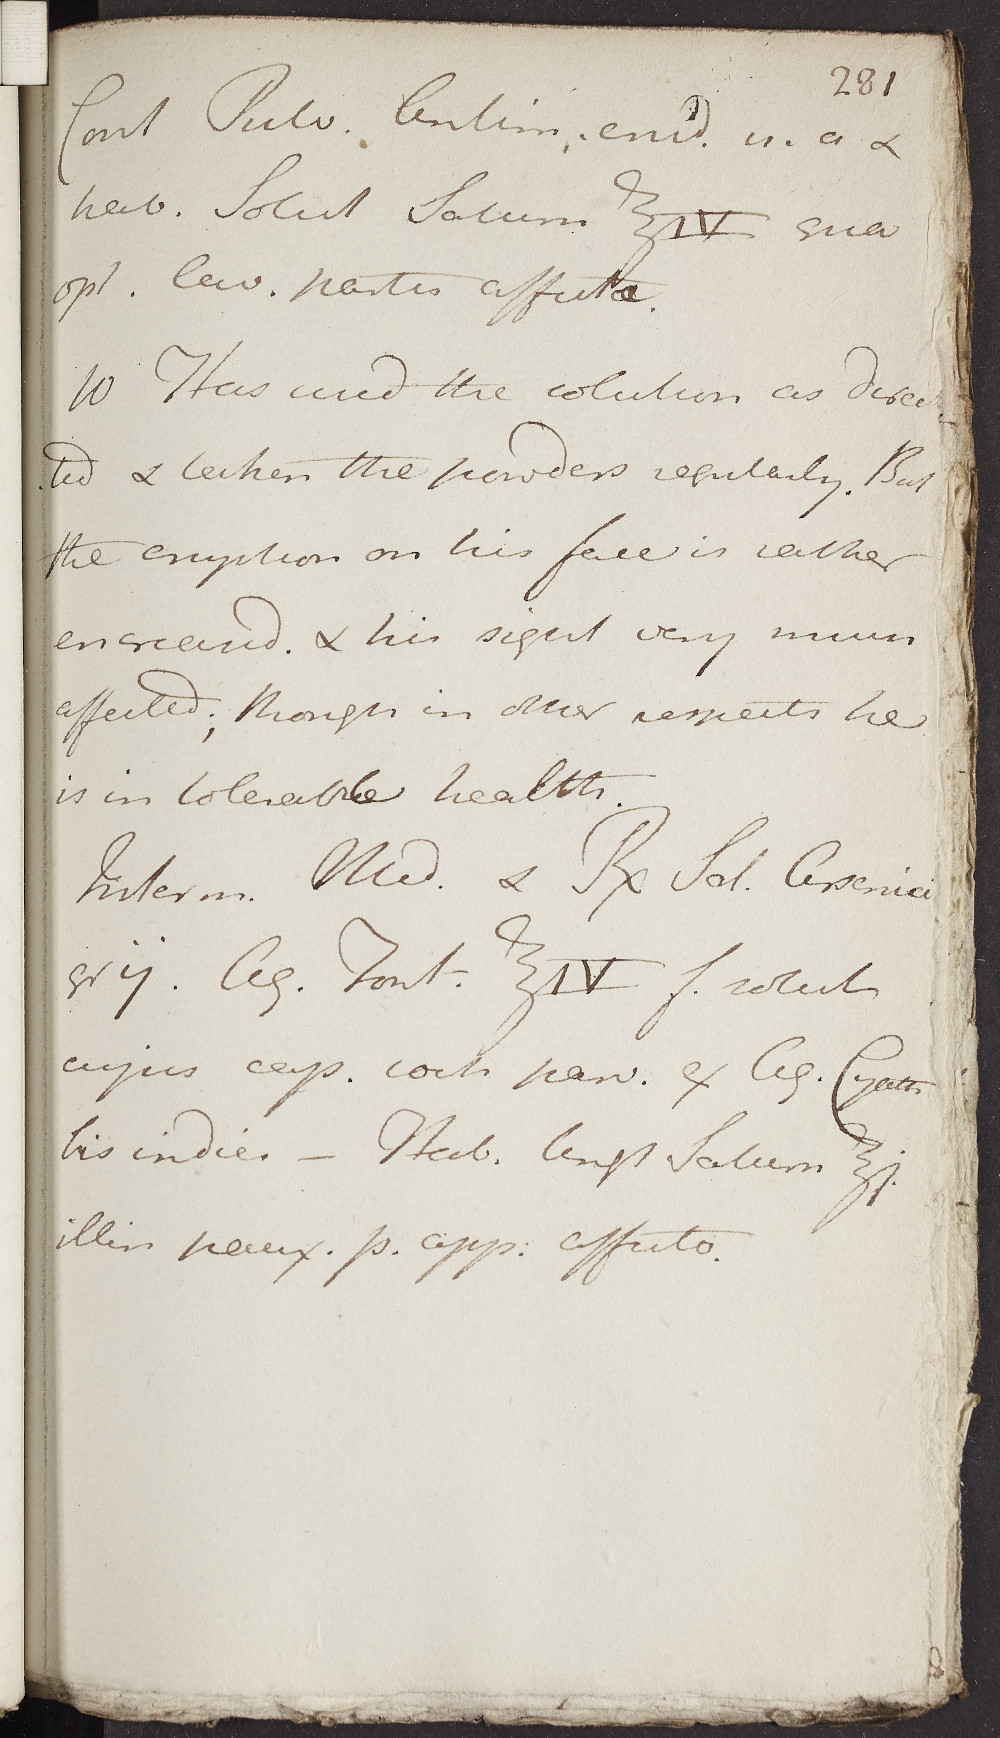 281
Cont Pulv. Antim. crud. u. a &
hab. Solut Saturn ℥IV qua
opt. lav. partes affecta.
10 Has used the solution as direc
ted & taken the powders regularly. But
the eruption on his face is rather
encreased. & his sight very much
affected; though in other respects he
is in tolerable health.
Interm. Med. & ℞ Sal. Arsenici
gr ij. Aq. Font. ℥IV f. solut
cujus cap. coch parv. ex Aq. Cyath
bis indies — Hab. Ungt Saturn ℥j.
illin paux. p. app. affecto.